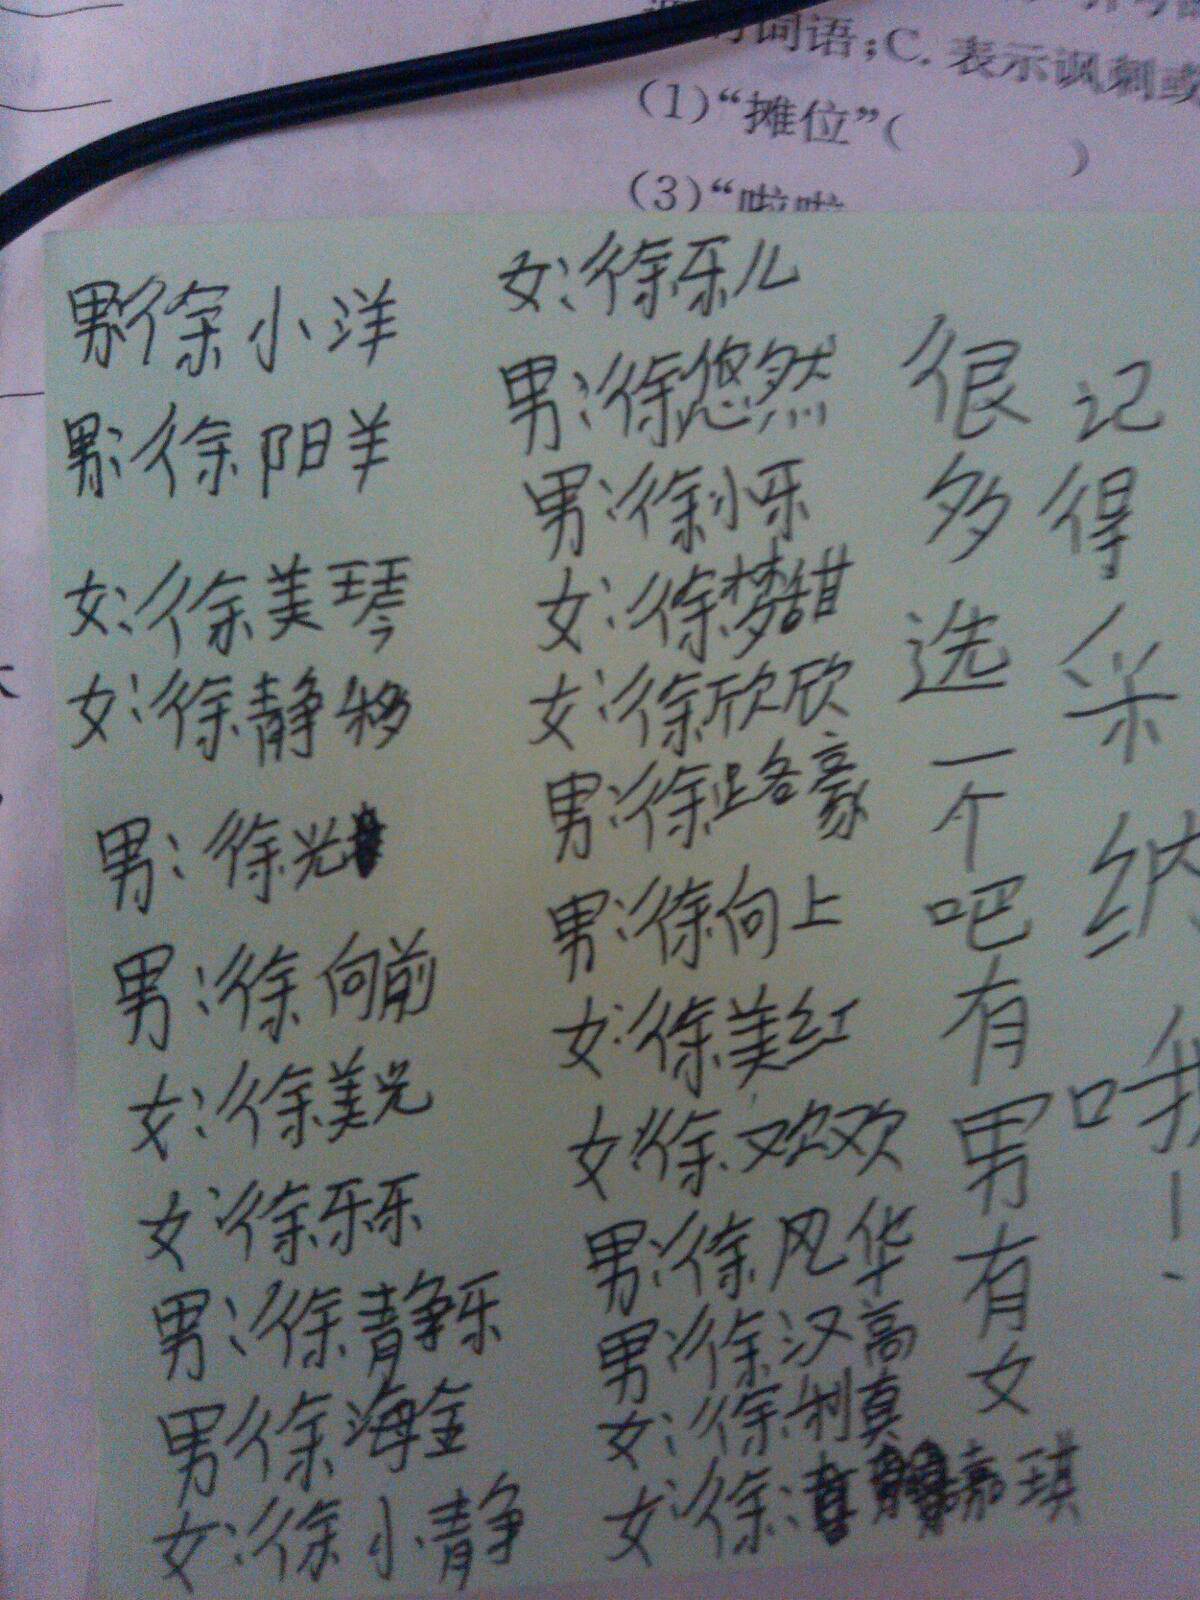 词语;C.表示讽刺或
(1)“摊位”( )
(3)“啦啦
男:徐小洋
男:徐阳羊
女:徐美琴
女:徐静移
男:徐光
男:徐向前
女:徐美光
女:徐乐乐
男:徐静乐
男徐海金
女:徐小静
女:徐乐儿
男:徐悠然
男:徐小乐
女:徐梦甜
女:徐欣欣
男:徐路豪
男:徐向上
女:徐美红
女:徐欢欢
男:徐风华
男:徐汉高
女:徐利真
女:徐嘉琪
很多选一个吧有男有女
记得采纳哦!